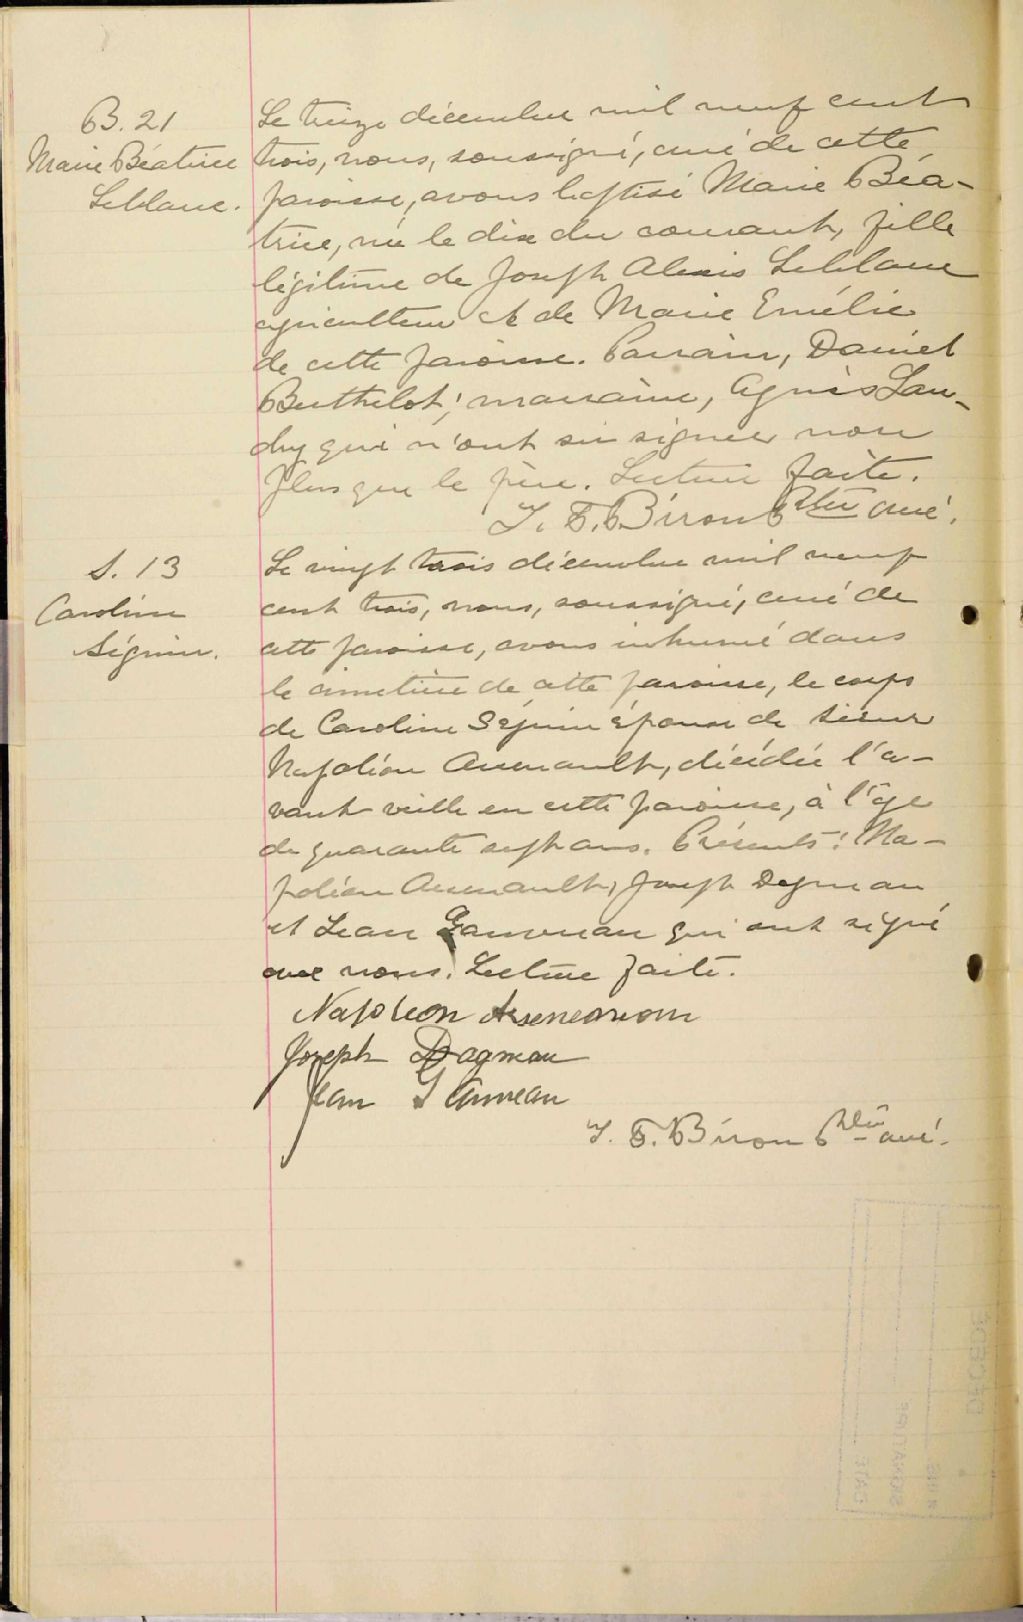 B. 21
Marie Béatrice
Leblanc.
Le treize décembre mil neuf cent
trois, nous, soussigné, curé de cette
paroisse, avons baptisé Marie Béa-
trice, née le dix du courant, fille
légitime de Joseph Alexis Leblanc
agriculteur et de Marie Emélie
de cette paroisse. Parrain, Daniel
Berthelot; marraine, Agnès Lan-
dry qui n'ont su signer non
plus que le père. Lecture faite.
Biron Ptre curé.
S. 13
Caroline
Séguin.
Le vingt trois décembre mil neuf
cent trois, nous, soussigné, curé de
cette paroisse, avons inhumé dans
le cimetière de cette paroisse, le corps
de Caroline Séguin épouse de sieur
Napoléon Arsenault, décédée l'a-
vant veille en cette paroisse, à l'âge
de quarante sept ans. Présents: Na-
poléon Arsenault, Joseph Dagneau
et Jean qui ont signé
avec nous. Lecture faite.
Napoleon
Joseph Dagneau
Jean
Biron Ptre curé.
DÉCÉDÉ
SIGNATURE
DATE